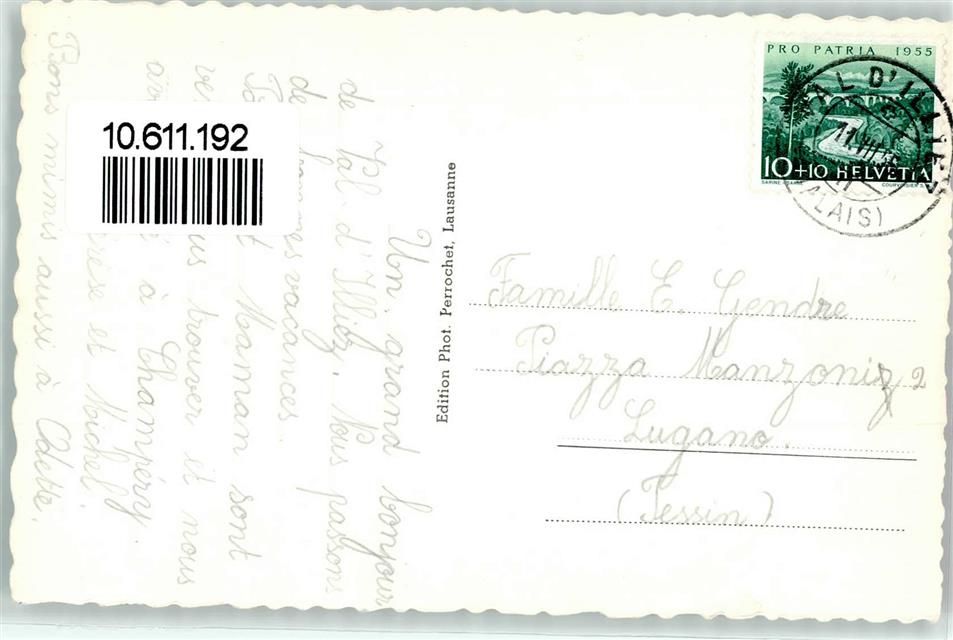 10.611.192
Un grand bonjour
de Val d'Illiez. Nous passons
de bonnes vacances.
et Maman sont
trouver et nous
à Champéry
et Michel
Bons mimis aussi à Odette.
Edition Phot. Perrochet, Lausanne
PRO PATRIA 1955
10+10 HELVETIA
COURVOISIER S.A.
VAL D'ILLIEZ
(VALAIS)
Famille E. Gendre
Piazza Manzoni 2
Lugano.
(Tessin)